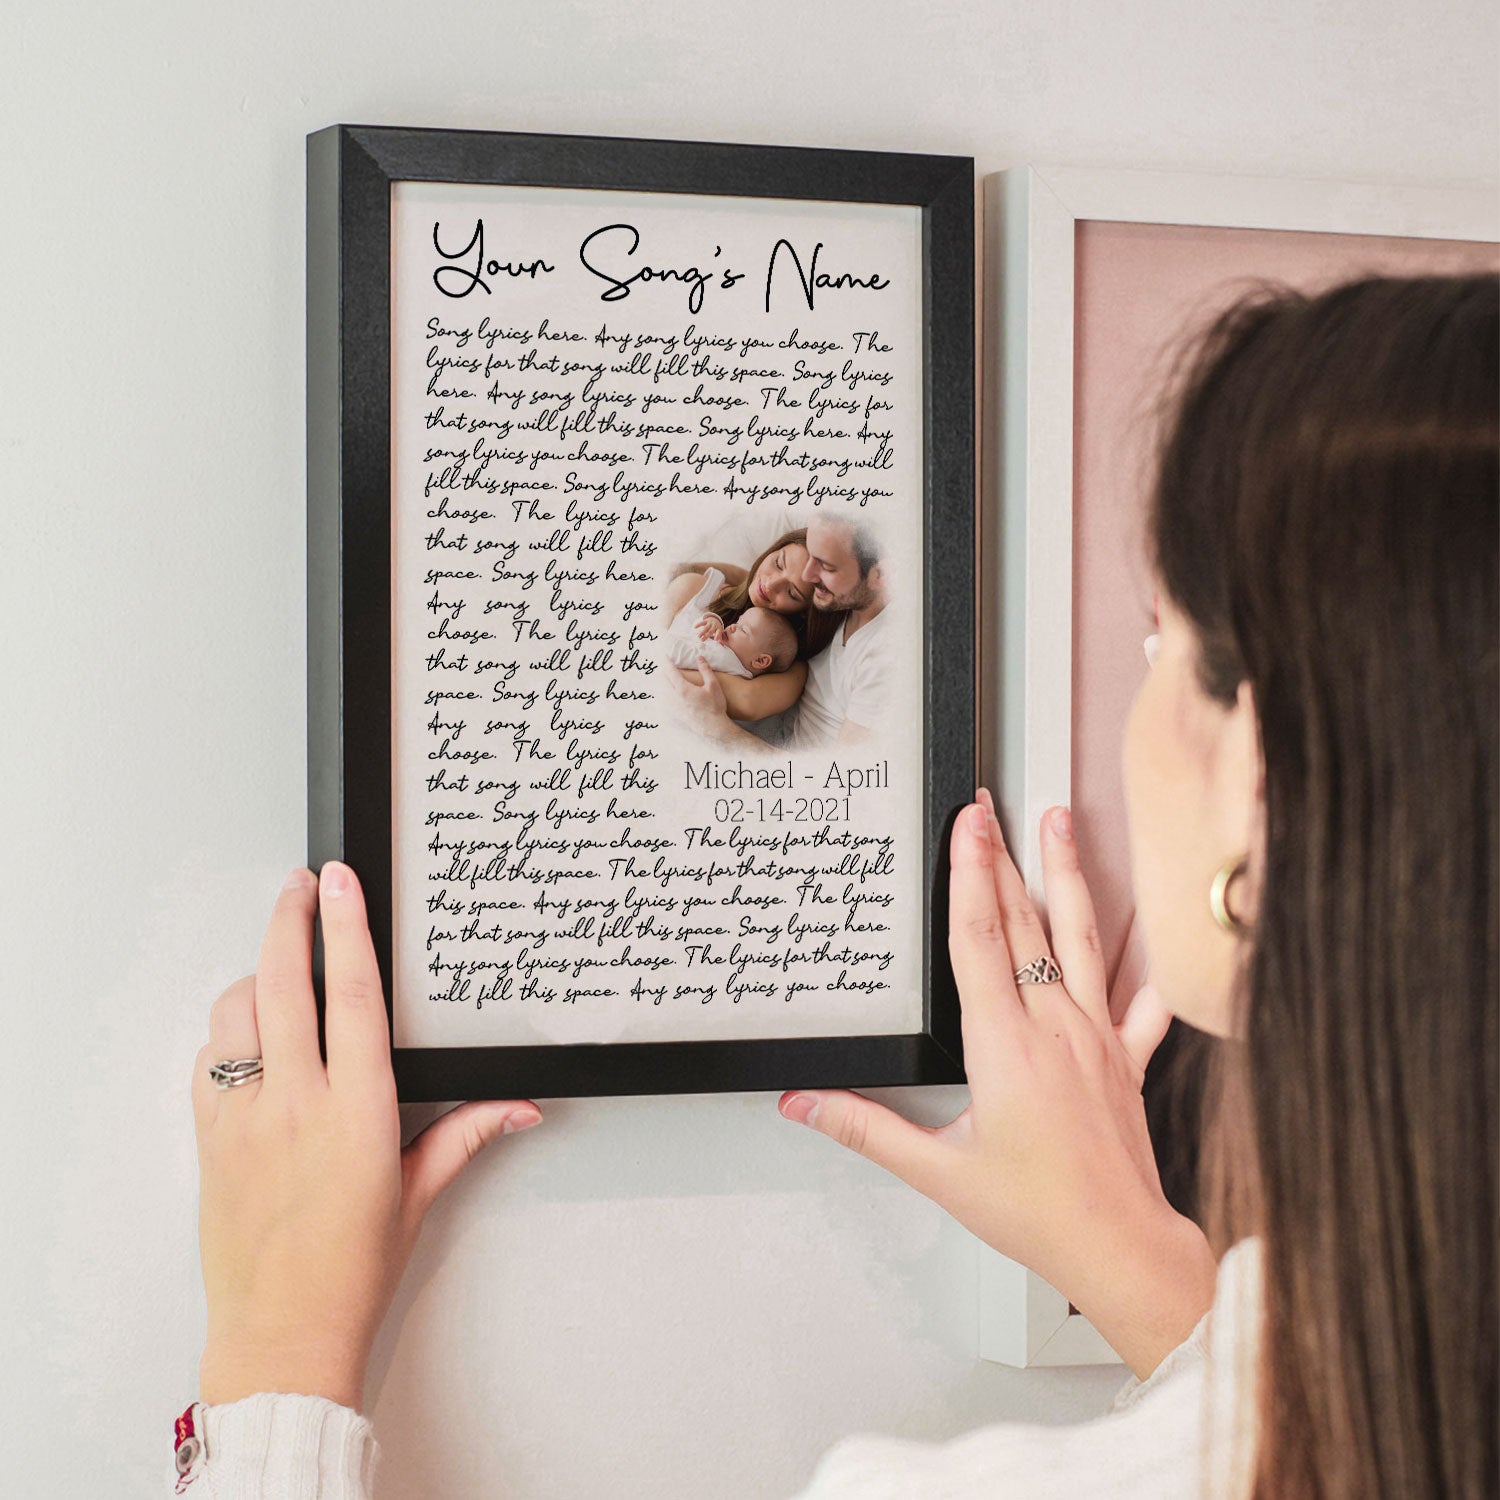 Your Song's Name
Song lyrics here. Any song lyrics you choose. The
lyrics for that song will fill this space. Song lyrics
here. Any song lyrics you choose. The lyrics for
that song will fill this space. Song lyrics here. Any
song lyrics you choose. The lyrics for that song will
fill this space. Song lyrics here. Any song lyrics you
choose. The lyrics for
that song will fill this
space. Song lyrics here.
Any song lyrics you
choose. The lyrics for
that song will fill this
space. Song lyrics here.
Any song lyrics you
choose. The lyrics for
that song will fill this
space. Song lyrics here.
Michael - April
02-14-2021
Any song lyrics you choose. The lyrics for that song
will fill this space. The lyrics for that song will fill
this space. Any song lyrics you choose. The lyrics
for that song will fill this space. Song lyrics here.
Any song lyrics you choose. The lyrics for that song
will fill this space. Any song lyrics you choose.